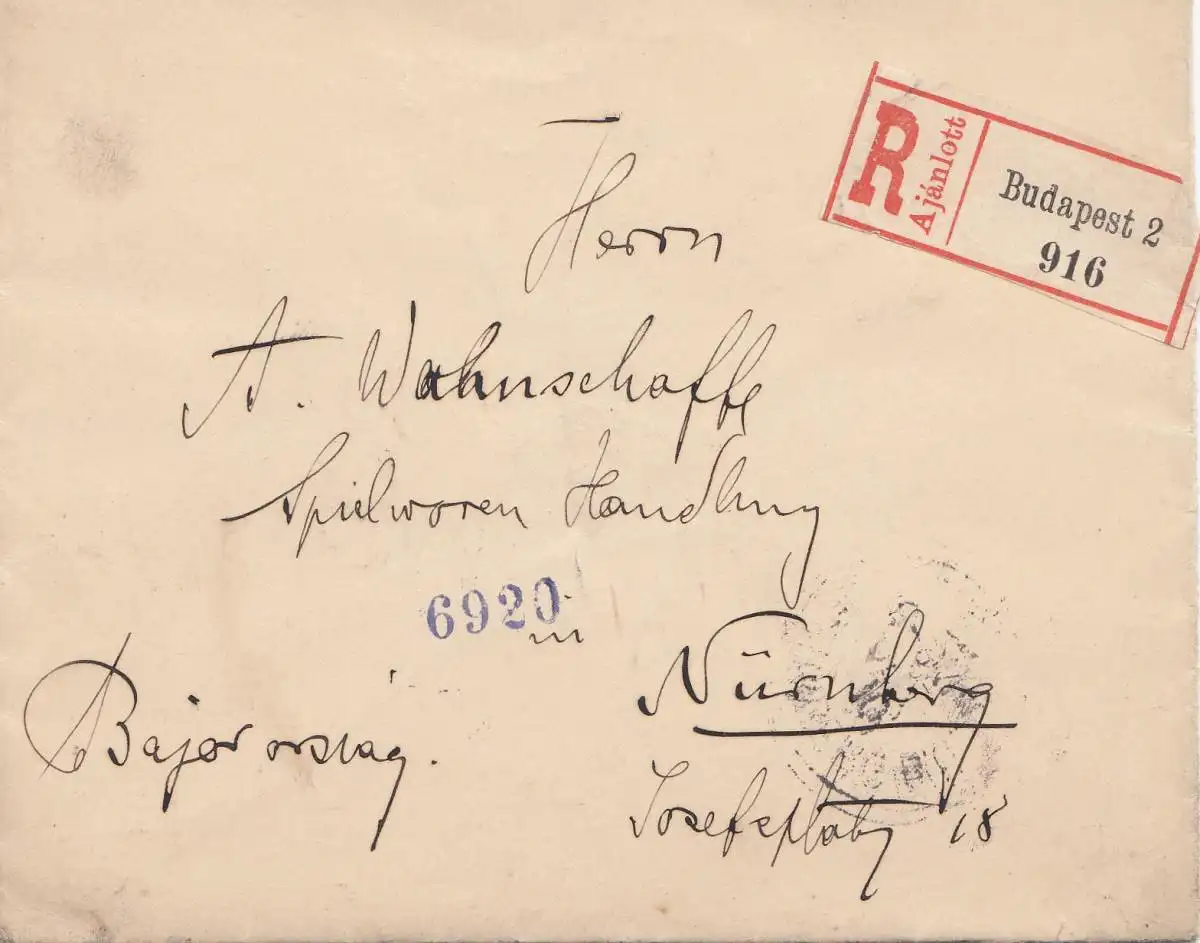 R Ajánlott
Budapest 2
916
Herrn
A. Wahnschaffe
Spielwaren Handlung
6920
in
Nürnberg
Bajor ország.
Josefsplatz 18